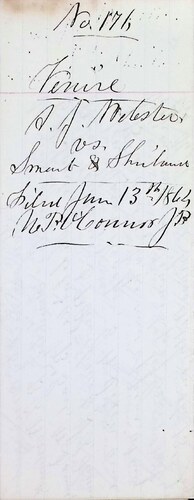 No. 176
Venire
S. J. Webster
vs.
Smart &
Filed Jan 13th 1864
Connor J P